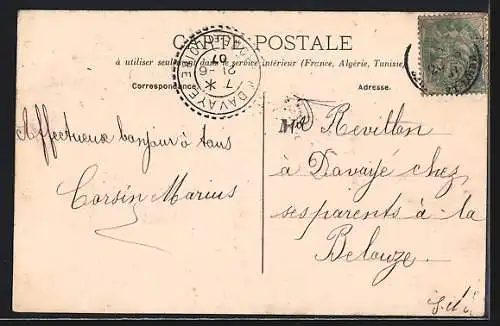 CARTE POSTALE
à utiliser seulement dans le service intérieur (France, Algérie, Tunisie)
Correspondance
Adresse.
Affectueux bonjour à tous
Corsin Marius
Revillon
à Davayé chez
ses parents à la
Belouze.
S.-et-L.
DAVAYE
7 * 21-6 07